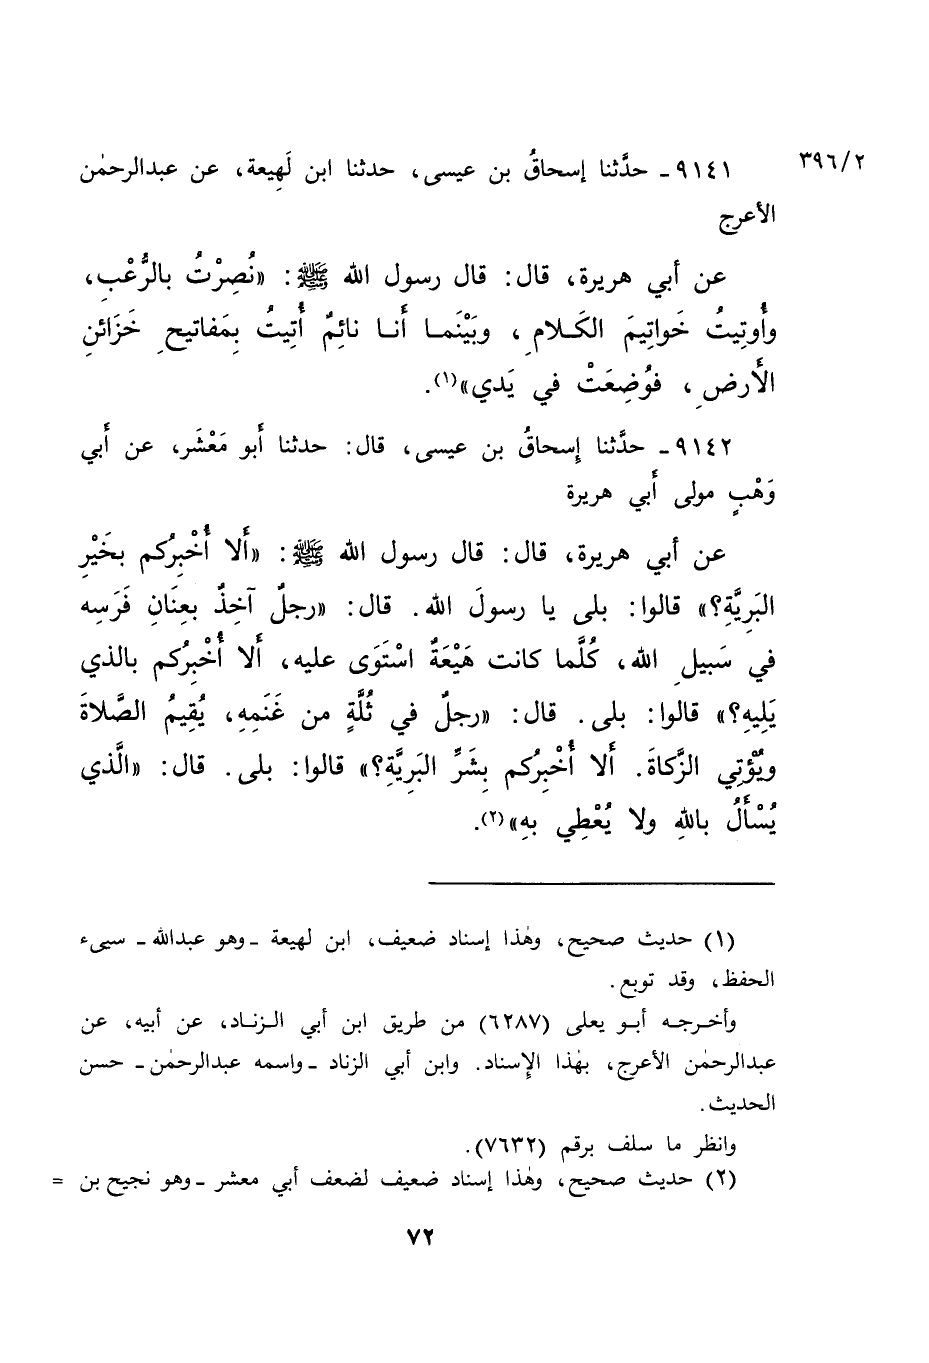 ٣٩٦/٢
٩١٤١ـ حدَّثنا إسحاقُ بن عيسى، حدثنا ابن لَهِيعة، عن عبدالرحمٰن
الأعرج
عن أبي هريرة، قال: قال رسول الله ﷺ: «نُصِرْتُ بالرُّعْبِ،
وأُوتِيتُ خَواتِيمَ الكَـلامِ، وبَيْنَمـا أَنـا نائِمٌ أُتِيتُ بِمَفاتيحِ خَزَائنِ
الأَرضِ، فوُضِعَتْ في يَدي»(١).
٩١٤٢ـ حدَّثنا إِسحاقُ بن عيسى، قال: حدثنا أَبو مَعْشَر، عن أَبي
وَهْبٍ مولى أَبي هريرة
عن أبي هريرة، قال: قال رسول الله ﷺ: «أَلا أُخْبِرُكم بخَيْرِ
البَرِيَّةِ؟» قالوا: بلى يا رسولَ الله. قال: «رجلٌ آخِذٌ بعِنَانِ فَرَسِه
في سَبيلِ الله، كُلَّما كانت هَيْعَةٌ اسْتَوَى عليه، أَلا أُخْبِرُكم بالذي
يَلِيهِ؟» قالوا: بلى. قال: «رجلٌ في ثُلَّةٍ من غَنَمِهِ، يُقِيمُ الصَّلاةَ
ويُؤْتِي الزَّكاةَ. أَلا أُخْبِرُكم بِشَرِّ البَرِيَّةِ؟» قالوا: بلى. قال: «الَّذي
يُسْأَلُ باللهِ ولا يُعْطِي بهِ»(٢).
(١) حديث صحيح، وهٰذا إسناد ضعيف، ابن لهيعة ـوهو عبداللهـ سيىء
الحفظ، وقد توبع.
وأخـرجـه أبـو يعلى (٦٢٨٧) من طريق ابن أبي الـزنـاد، عن أبيه، عن
عبدالرحمٰن الأعرج، بهٰذا الإِسناد. وابن أبي الزناد ـواسمه عبدالرحمٰنـ حسن
الحديث.
وانظر ما سلف برقم (٧٦٣٢).
(٢) حديث صحيح، وهٰذا إسناد ضعيف لضعف أبي معشر ـوهو نجيح بن =
٧٢